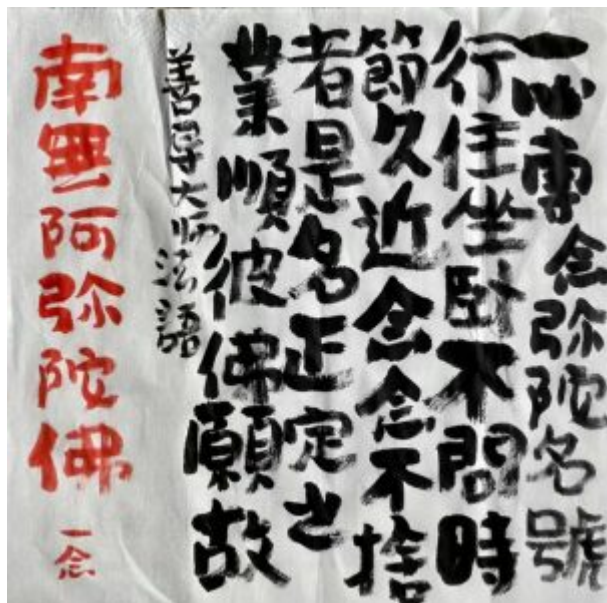 一心專念弥陀名號
行住坐卧不問時
節久近念念不捨
者是名正定之
業順彼佛願故
善导大师法語
南無阿弥陀佛
一念